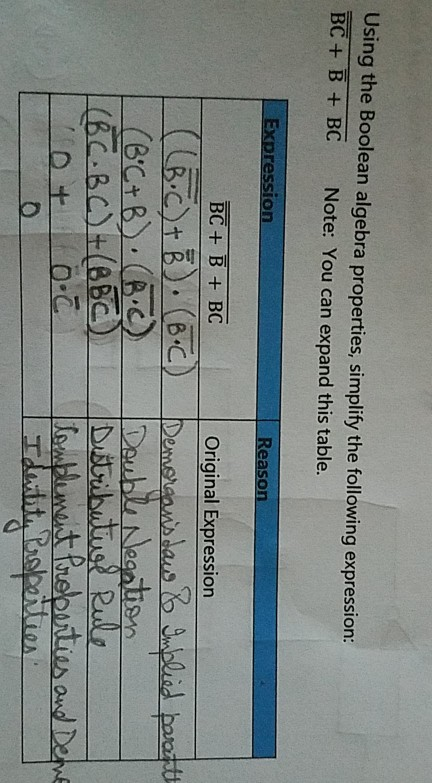 Using the Boolean algebra properties, simplify the following expression:
B̿C̿ + B̿ + B̅C̅ Note: You can expand this table.
Expression Reason
B̿C̿ + B̿ + B̅C̅ Original Expression
((B̿·C̿) + B̿)·(B̅·C̅) Demorgans law & Implied parenth
(B·C+B)·(B̅·C̅) Double Negation
(B̅C̅·BC)+(BB̅C̅) Distributive Rule
0 + 0·C̅ Complement Properties and Dem
0 Identity Properties.